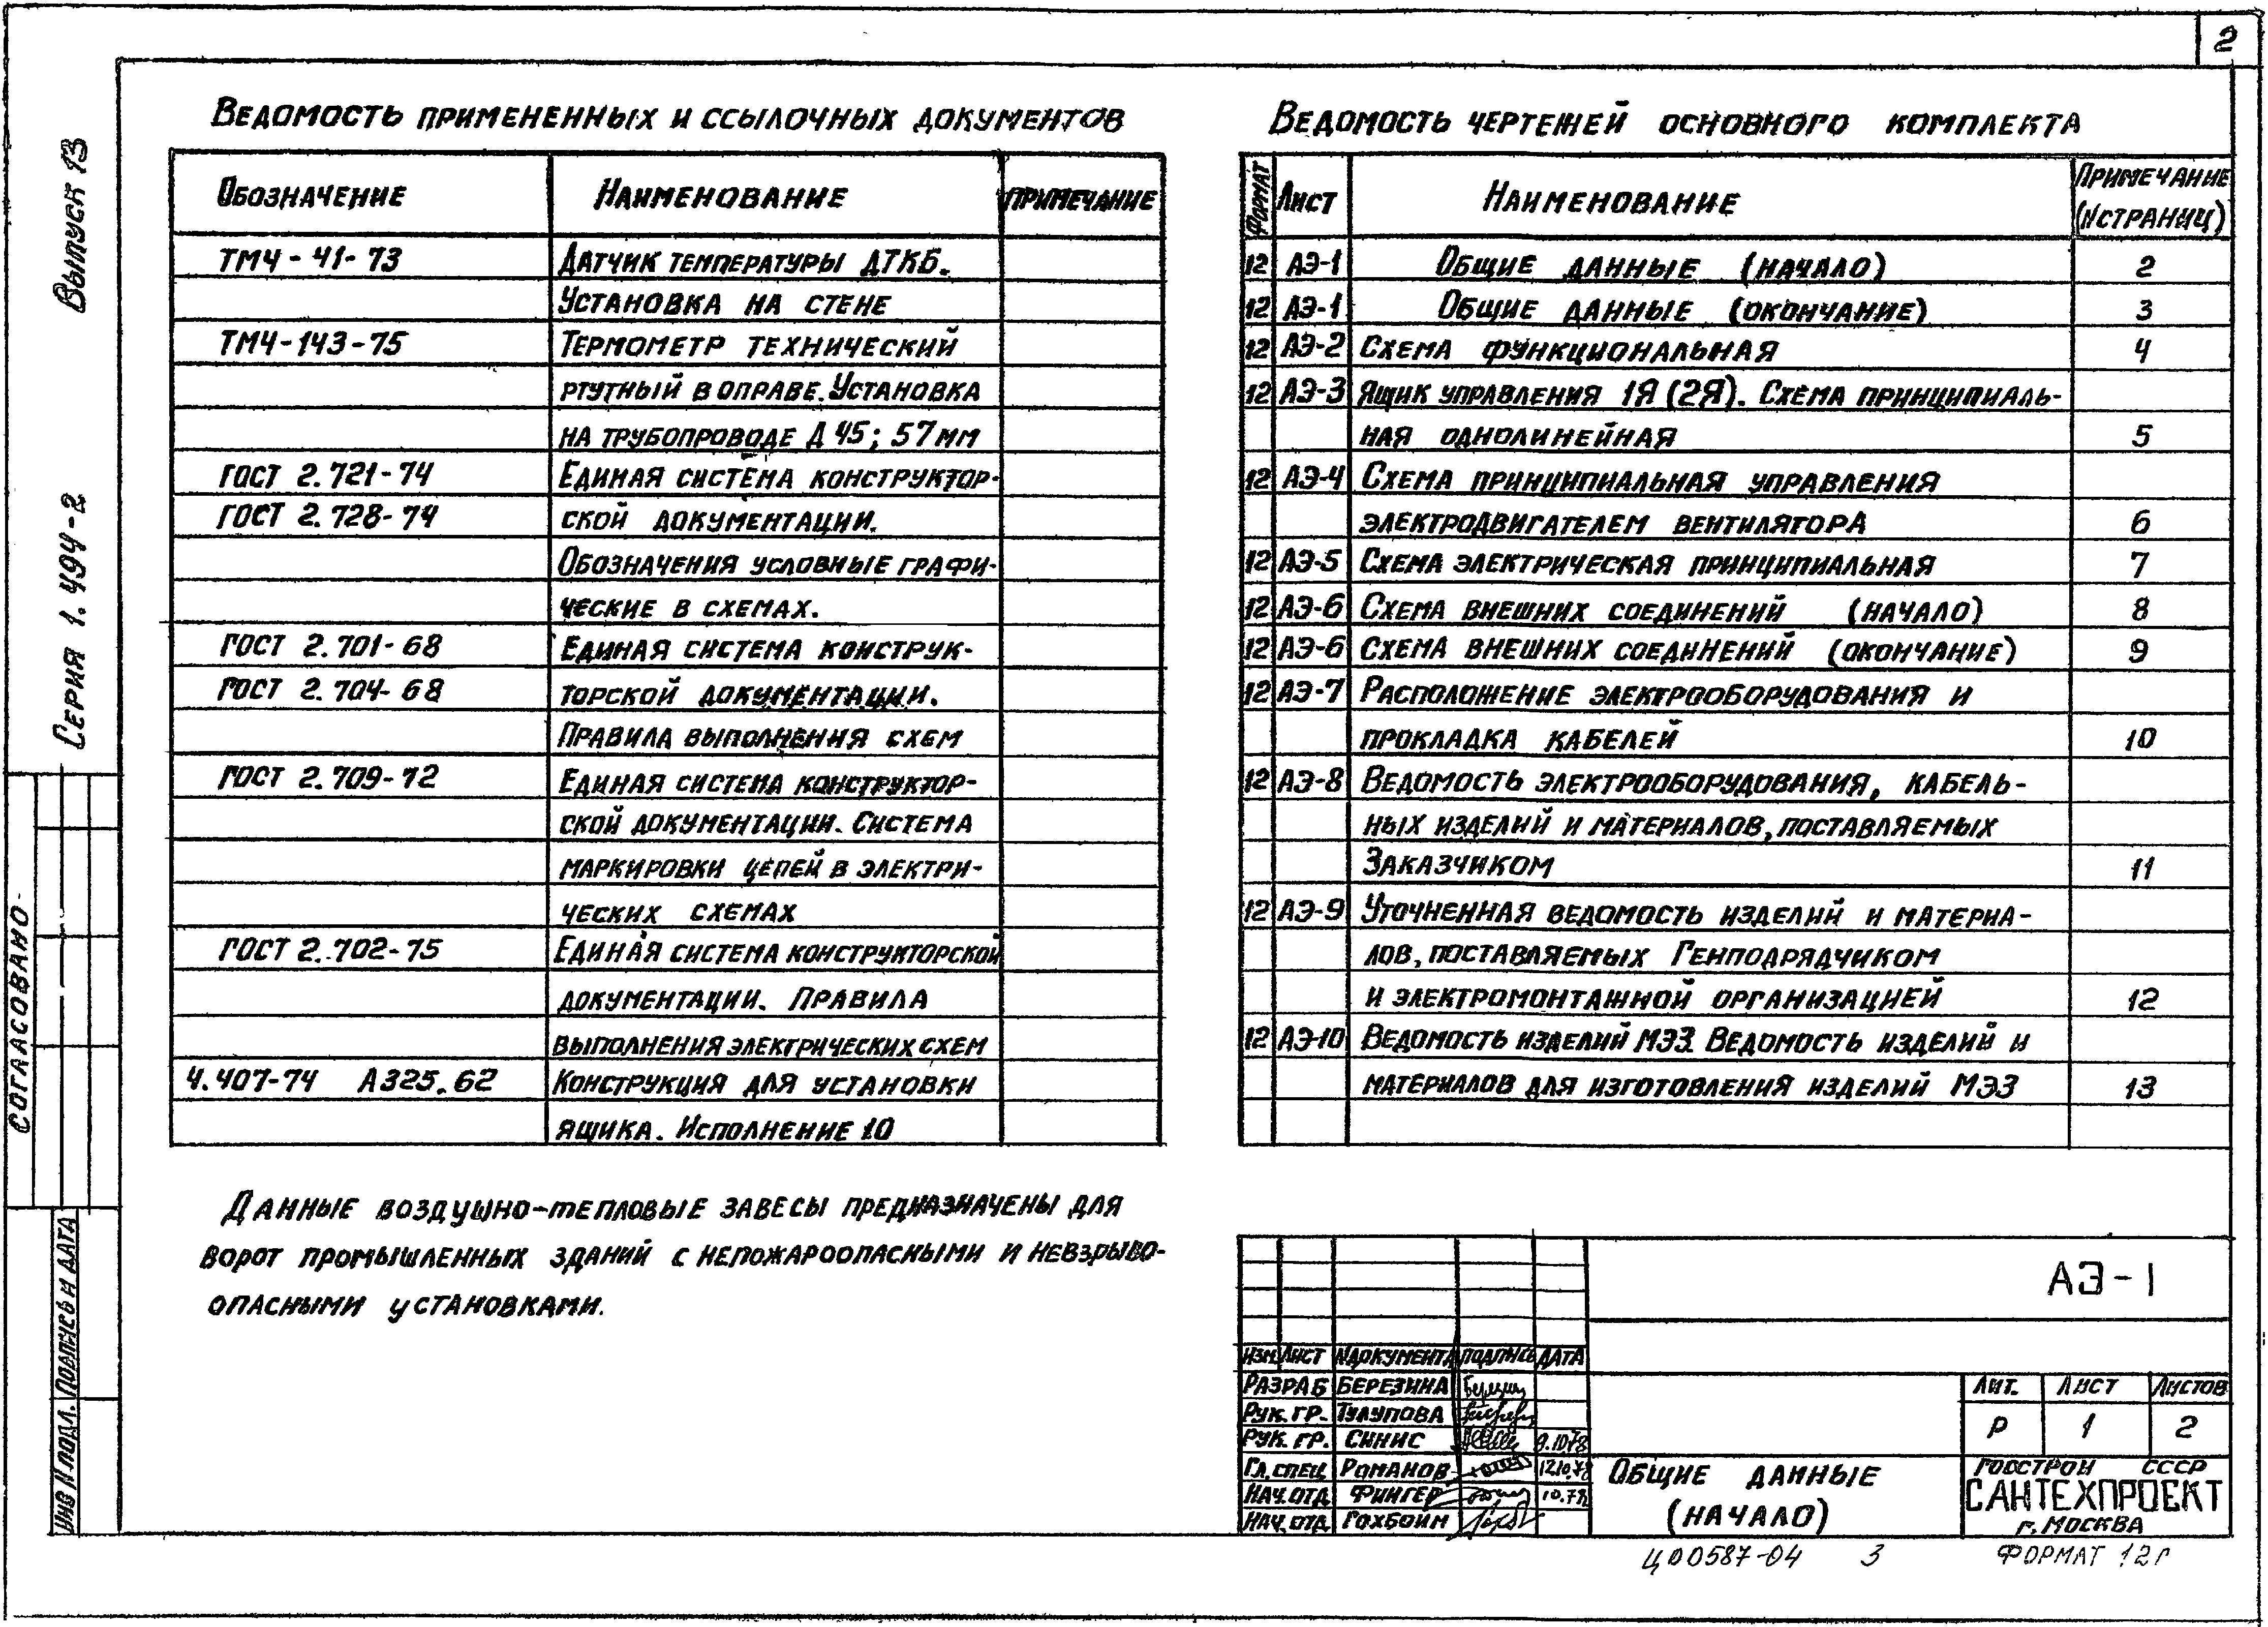 2
Выпуск 13
Серия 1.494-2
Согласовано
Инв N подл.
Подпись и дата
Ведомость примененных и ссылочных документов
Обозначение Наименование Примечание
ТМ4-41-73 Датчик температуры ДТКБ.
Установка на стене
ТМ4-143-75 Термометр технический
ртутный в оправе. Установка
на трубопроводе Д 45; 57мм
ГОСТ 2.721-74 Единая система конструктор-
ГОСТ 2.728-74 ской документации.
Обозначения условные графи-
ческие в схемах.
ГОСТ 2.701-68 Единая система конструк-
ГОСТ 2.704-68 торской документации.
Правила выполнения схем
ГОСТ 2.709-72 Единая система конструктор-
ской документации. Система
маркировки цепей в электри-
ческих схемах
ГОСТ 2.702-75 Единая система конструкторской
документации. Правила
выполнения электрических схем
4.407-74 А325.62 Конструкция для установки
ящика. Исполнение 10
Данные воздушно-тепловые завесы предназначены для
ворот промышленных зданий с непожароопасными и невзрыво-
опасными установками.
Ведомость чертежей основного комплекта
Формат Лист Наименование Примечание
(N страниц)
12 АЭ-1 Общие данные (начало) 2
12 АЭ-1 Общие данные (окончание) 3
12 АЭ-2 Схема функциональная 4
12 АЭ-3 Ящик управления 1Я (2Я). Схема принципиаль-
ная однолинейная 5
12 АЭ-4 Схема принципиальная управления
электродвигателем вентилятора 6
12 АЭ-5 Схема электрическая принципиальная 7
12 АЭ-6 Схема внешних соединений (начало) 8
12 АЭ-6 Схема внешних соединений (окончание) 9
12 АЭ-7 Расположение электрооборудования и
прокладка кабелей 10
12 АЭ-8 Ведомость электрооборудования, кабель-
ных изделий и материалов, поставляемых
Заказчиком 11
12 АЭ-9 Уточненная ведомость изделий и материа-
лов, поставляемых Генподрядчиком
и электромонтажной организацией 12
12 АЭ-10 Ведомость изделий МЭЗ. Ведомость изделий и
материалов для изготовления изделий МЭЗ 13
АЭ-1
Изм. Лист N документа Подпись Дата
Разраб Березина Березин
Рук. гр. Тулупова
Рук. гр. Синис 9.10.78
Гл. спец Романов 12.10.78
Нач. отд Фингер 10.78
Нач. отд. Гохбойм
Общие данные
(начало)
Лит. Лист Листов
Р 1 2
Госстрой СССР
САНТЕХПРОЕКТ
г. Москва
Ц00587-04 3 Формат 12г